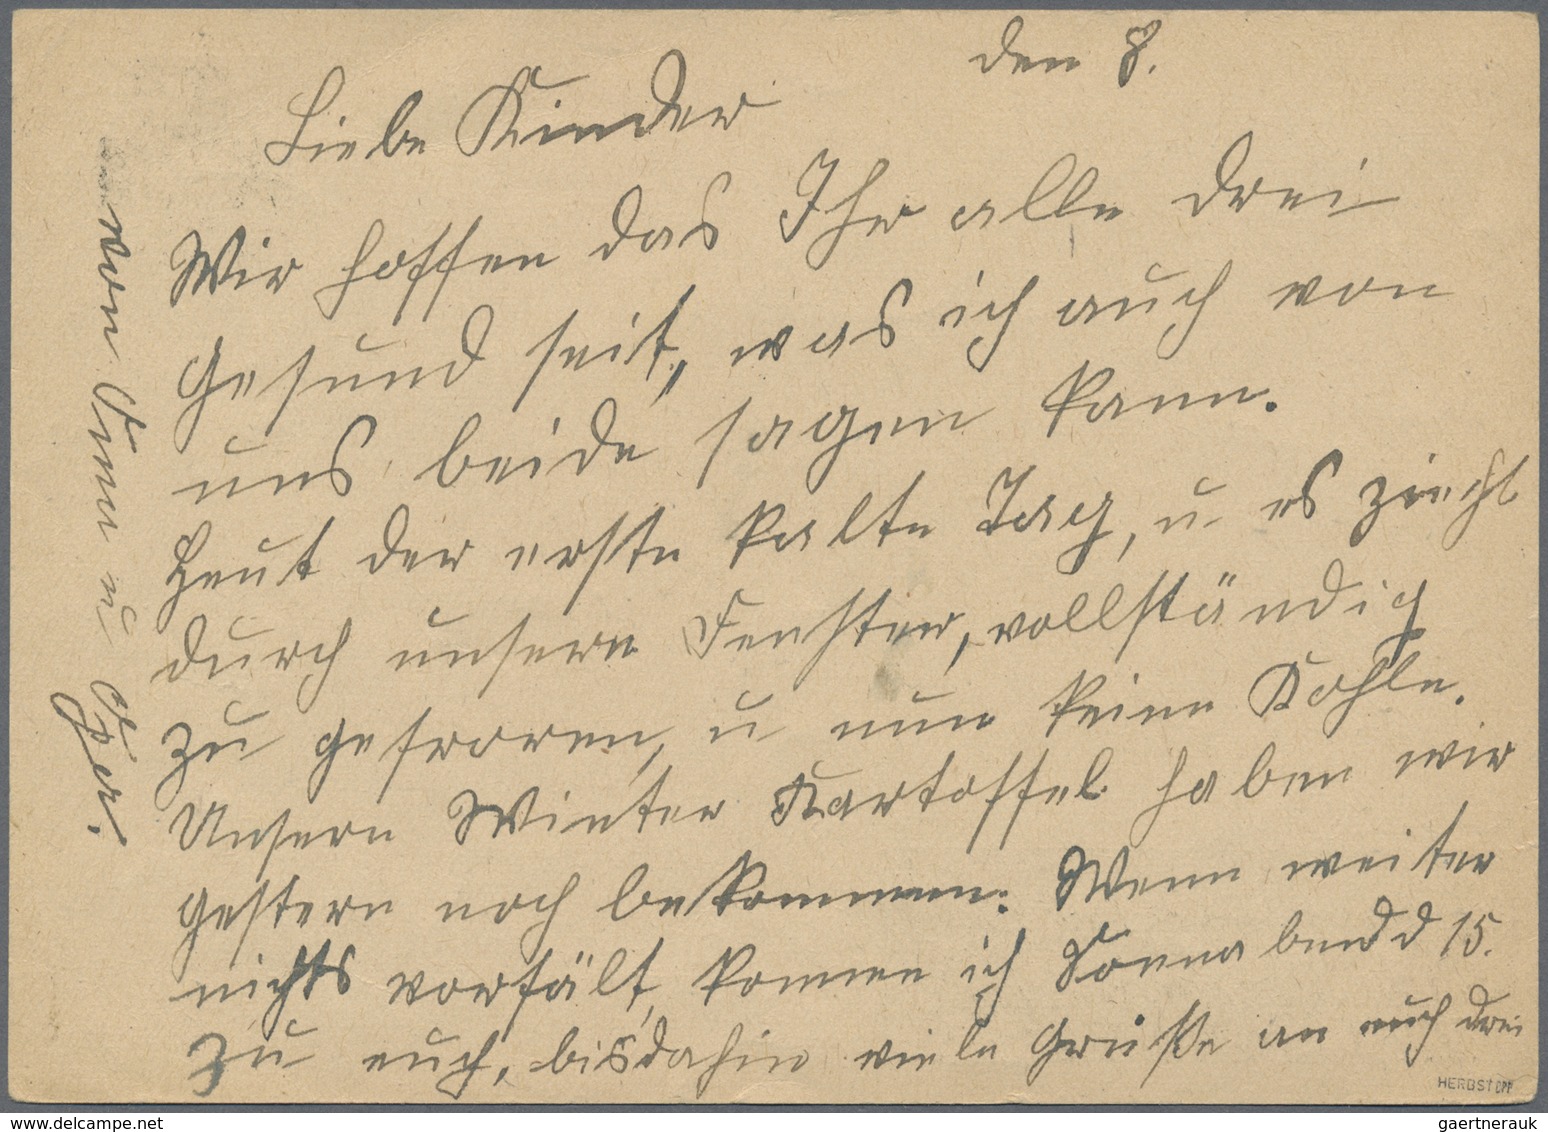 den 8.
Liebe Kinder
Wir hoffen das Ihr alle drei
Gesund seit, was ich auch von
uns beide sagen kann.
Heut der erste kalte Tag, u es ziecht
durch unsere Fenster, vollständig
zu gefroren, u nun keine Kohle.
Unsern Winter Kartoffel haben wir
gestern noch bekommen. Wenn weiter
nichts vorfält, komme ich Sonnabend d 15.
zu euch, bisdahin viele Grüße an euch drei
von u
HERBST DPF
delcampe.net
gaertnerauk